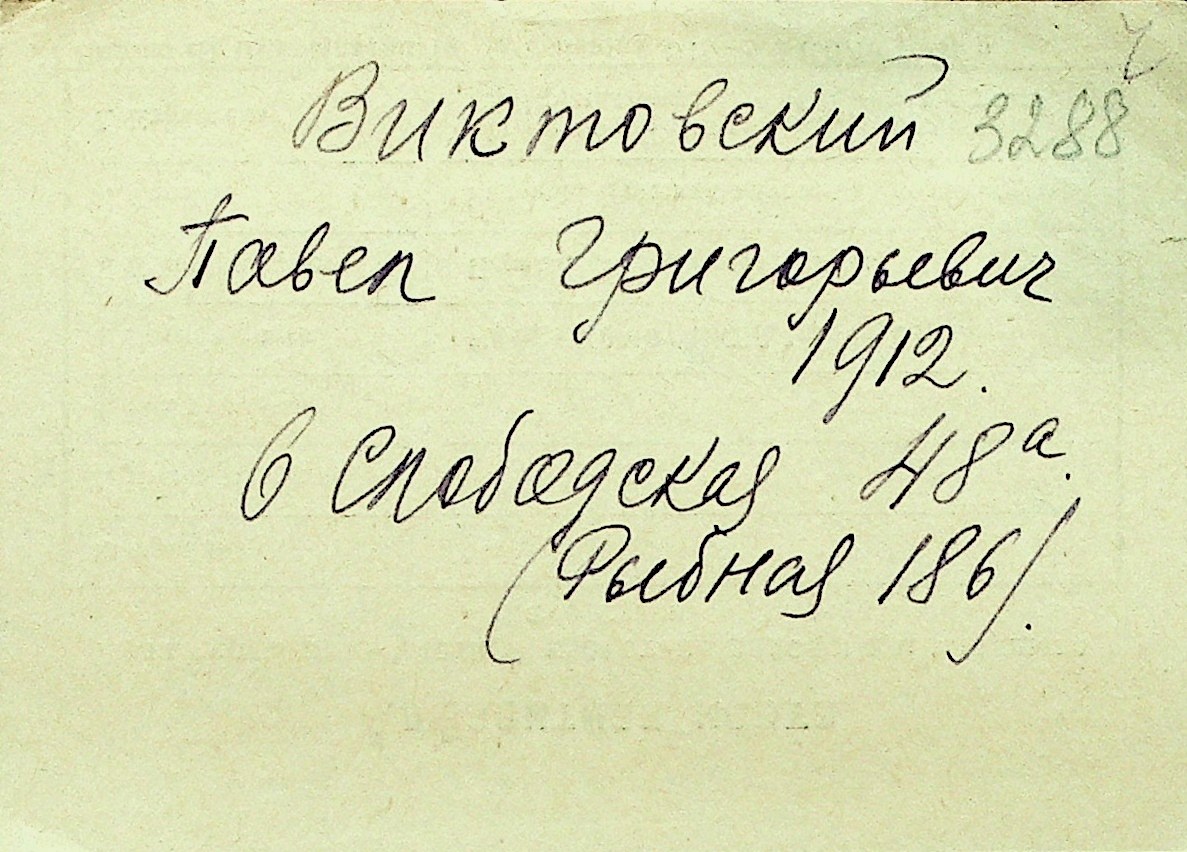 Виктовский 3288
Павел Григорьевич
1912.
В Слободская 48а.
(Рыбная 186).